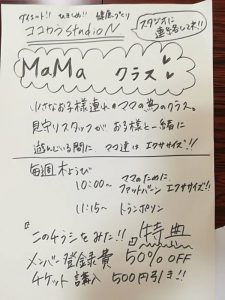 ダイエット!! ひきしめ!! 健康づくり
ココカラ studio N
スタジオに
連絡下さい!!
MaMa クラス
小さなお子様連れのママの為のクラス。
見守りスタッフが お子様と一緒に
遊んでいる間に ママ達は エクササイズ!!
毎週 木ようび
10:00〜 ママのために
ファットバーン エクササイズ!!
11:15〜 トランポリン
『このチラシをみた!!』特典
メンバー登録費 50% OFF
チケット購入 500円引き!!